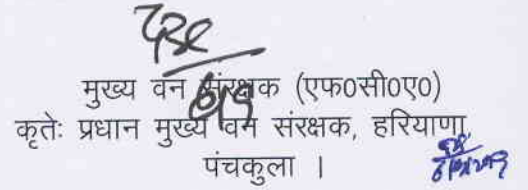 मुख्य वन संरक्षक (एफ0सी0ए0)
कृतेः प्रधान मुख्य वन संरक्षक, हरियाणा
पंचकुला ।